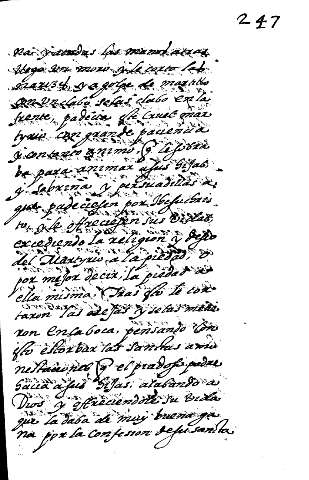 247
na y atadas las manos atras
llego un moro y le corto las
narizes, y a golpe de martillo
con un clabo se las clabo en la
frente, padecia este cruel mar
tyrio con grande paciencia
y con tanto animo, q le sobra
ba para animar a sus hijas
y sobrina y persuadillas a
que padeciesen por Jhesuchris
to, y le ofreciesen sus vidas
excediendo la religion y deseo
del Martyrio a la piedad o
por mejor decir la piedad a
ella misma. Tras esto le cor
taron las orejas y se las metie
ron en la boca, pensando con
esto estorbar las sanctas amo
nestaciones q el piadoso padre
hacia a sus hijas, alabando a
Dios y ofreciendole su vida
que la daba de muy buena ga
na por la confesion de su sancta